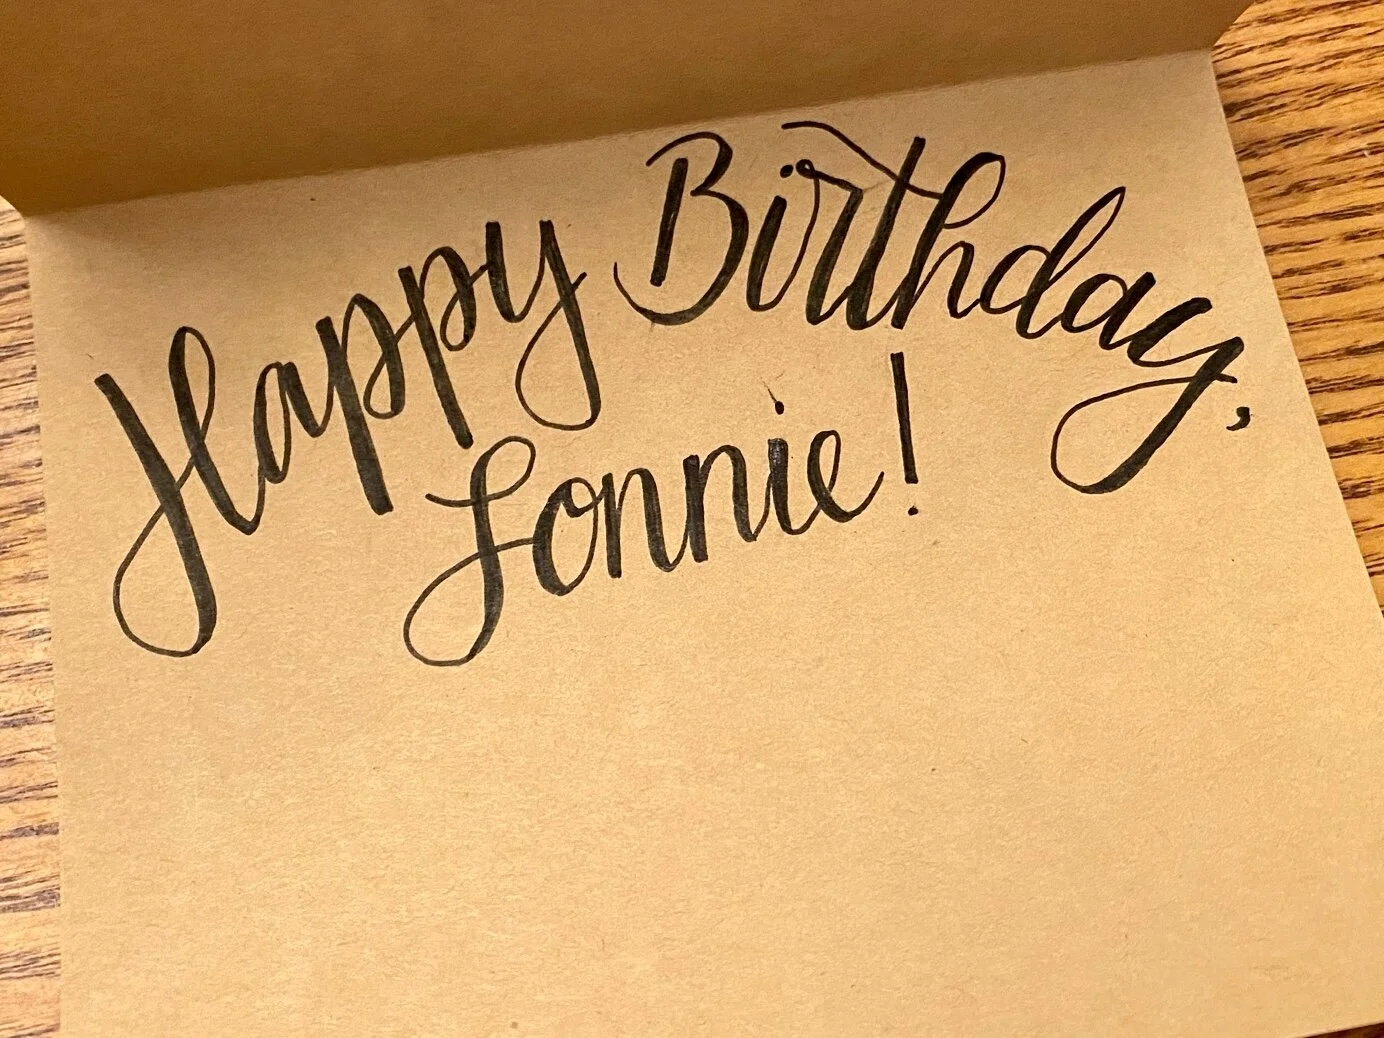 Happy Birthday,
Lonnie!